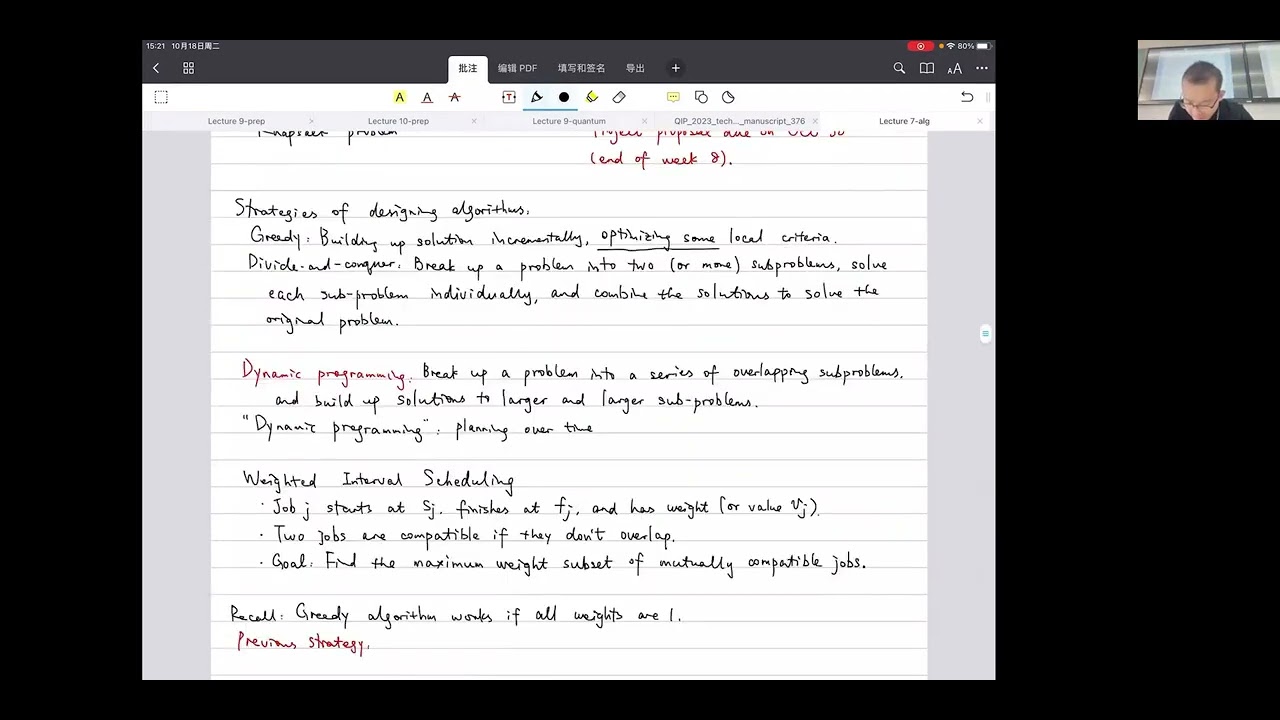 15:21 10月18日周二
80%
批注
编辑 PDF
填写和签名
导出
Lecture 9-prep
Lecture 10-prep
Lecture 9-quantum
QIP_2023_tech..._manuscript_376
Lecture 7-alg
Knapsack problem
Project proposal due on Oct 30
(end of week 8).
Strategies of designing algorithms.
Greedy: Building up solution incrementally, optimizing some local criteria.
Divide-and-conquer: Break up a problem into two (or more) subproblems, solve
each sub-problem individually, and combine the solutions to solve the
original problem.
Dynamic programming: Break up a problem into a series of overlapping subproblems.
and build up solutions to larger and larger sub-problems.
"Dynamic programming": planning over time
Weighted Interval Scheduling
· Job j starts at sj, finishes at fj, and has weight (or value vj).
· Two jobs are compatible if they don't overlap.
· Goal: Find the maximum weight subset of mutually compatible jobs.
Recall: Greedy algorithm works if all weights are 1.
Previous strategy.